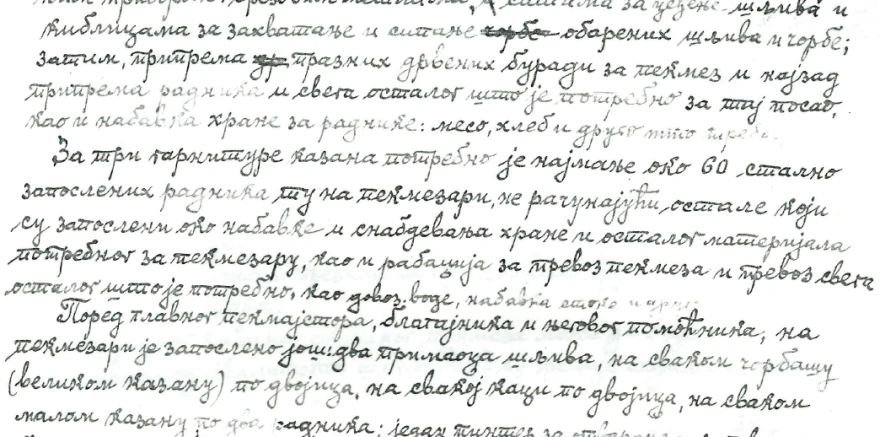 ситима за цеђење шљива и
киблицама за захватање и сипање чорбе обарених шљива и чорбе;
затим, припрема празних дрвених буради за пекмез и најзад
припрема радника и свега осталог што је потребно за тај посао,
као и набавка хране за раднике: месо, хлеб и друго што треба.
За три гарнитуре казана потребно је најмање око 60 стално
запослених радника ту на пекмезари, не рачунајући остале који
су запослени око набавке и снабдевања хране и осталог материјала
потребног за пекмезару, као и рабаџија за превоз пекмеза и превоз свега
осталог што је потребно, као довоз воде, набавка стоке и друго
Поред главног пекмајстора, благајника и његовог помоћника, на
пекмезари је запослено још: два примаоца шљива, на сваком чорбашу
(великом казану) по двојица, на свакој каци по двојица, на сваком
малом казану по два радника; један пинтер за отварање